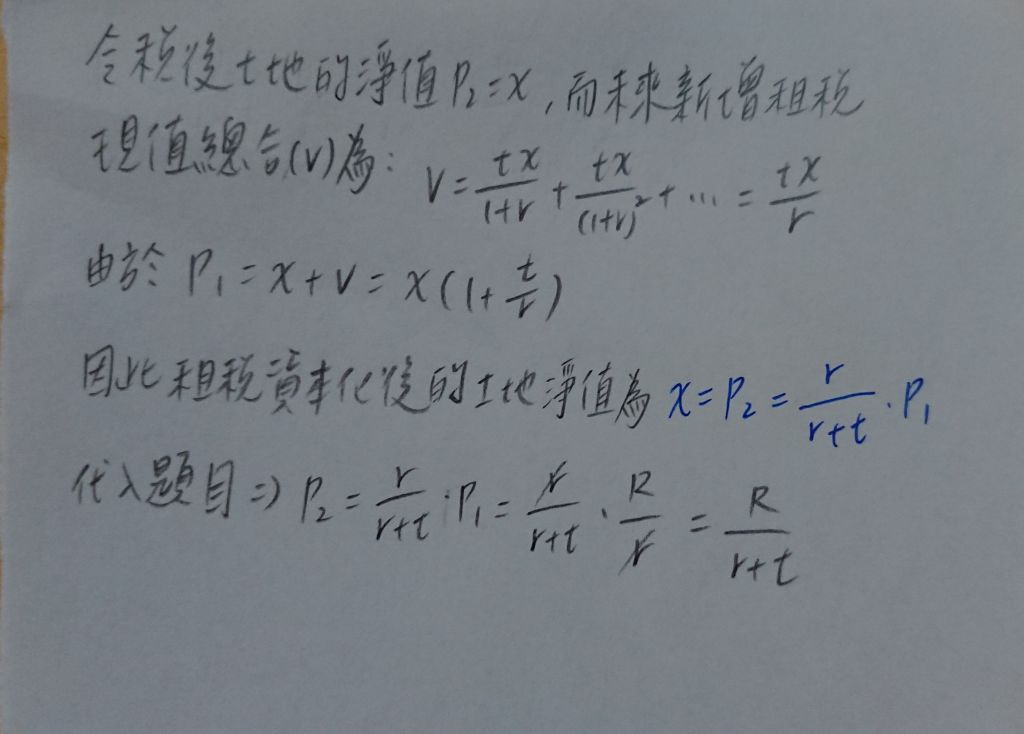 令稅後土地的淨值P₂=x,而未來新增租稅
現值總合(V)為: V = tx/(1+r) + tx/(1+r)² + ... = tx/r
由於 P₁ = x + V = x(1 + t/r)
因此租稅資本化後的土地淨值為 x = P₂ = r/(r+t) · P₁
代入題目 => P₂ = r/(r+t) · P₁ = r/(r+t) · R/r = R/(r+t)